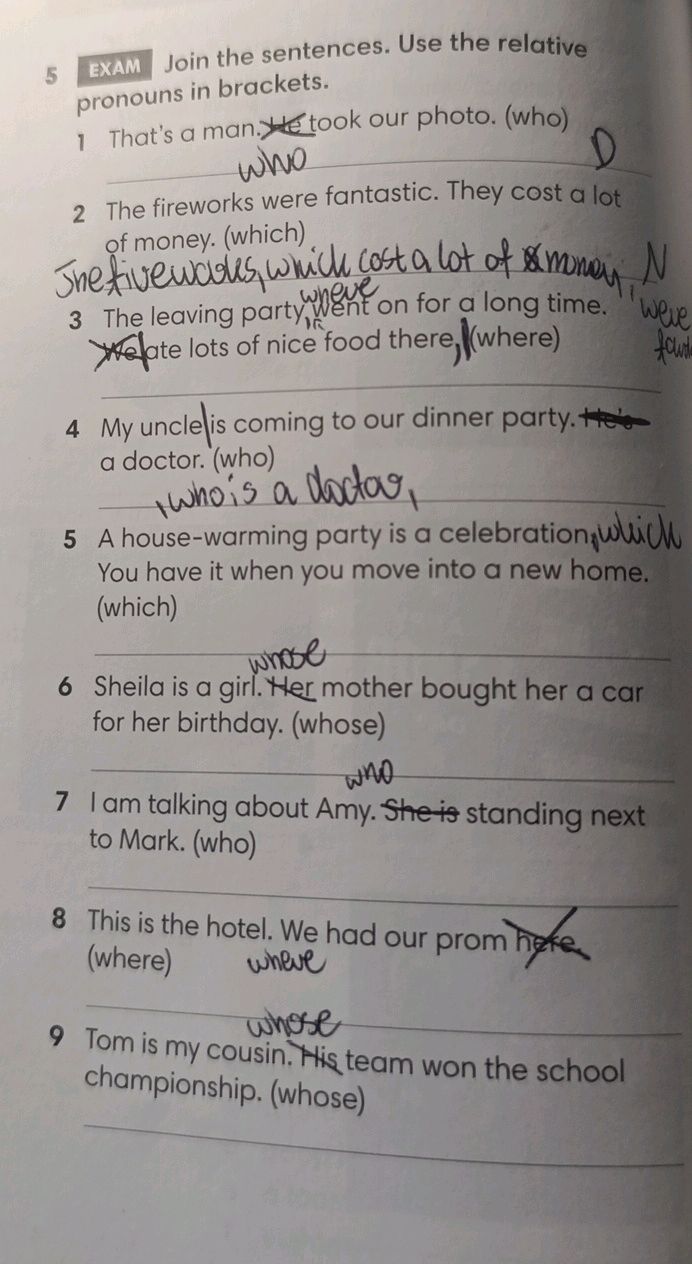 5 EXAM Join the sentences. Use the relative
pronouns in brackets.
1 That's a man. He took our photo. (who)
who D
2 The fireworks were fantastic. They cost a lot
of money. (which)
The fireworks, which cost a lot of money, N
where were
3 The leaving party went on for a long time.
We ate lots of nice food there, (where)
4 My uncle is coming to our dinner party. He's
a doctor. (who)
, who is a doctor,
5 A house-warming party is a celebration, which
You have it when you move into a new home.
(which)
whose
6 Sheila is a girl. Her mother bought her a car
for her birthday. (whose)
who
7 I am talking about Amy. She is standing next
to Mark. (who)
8 This is the hotel. We had our prom here.
(where) where
whose
9 Tom is my cousin. His team won the school
championship. (whose)